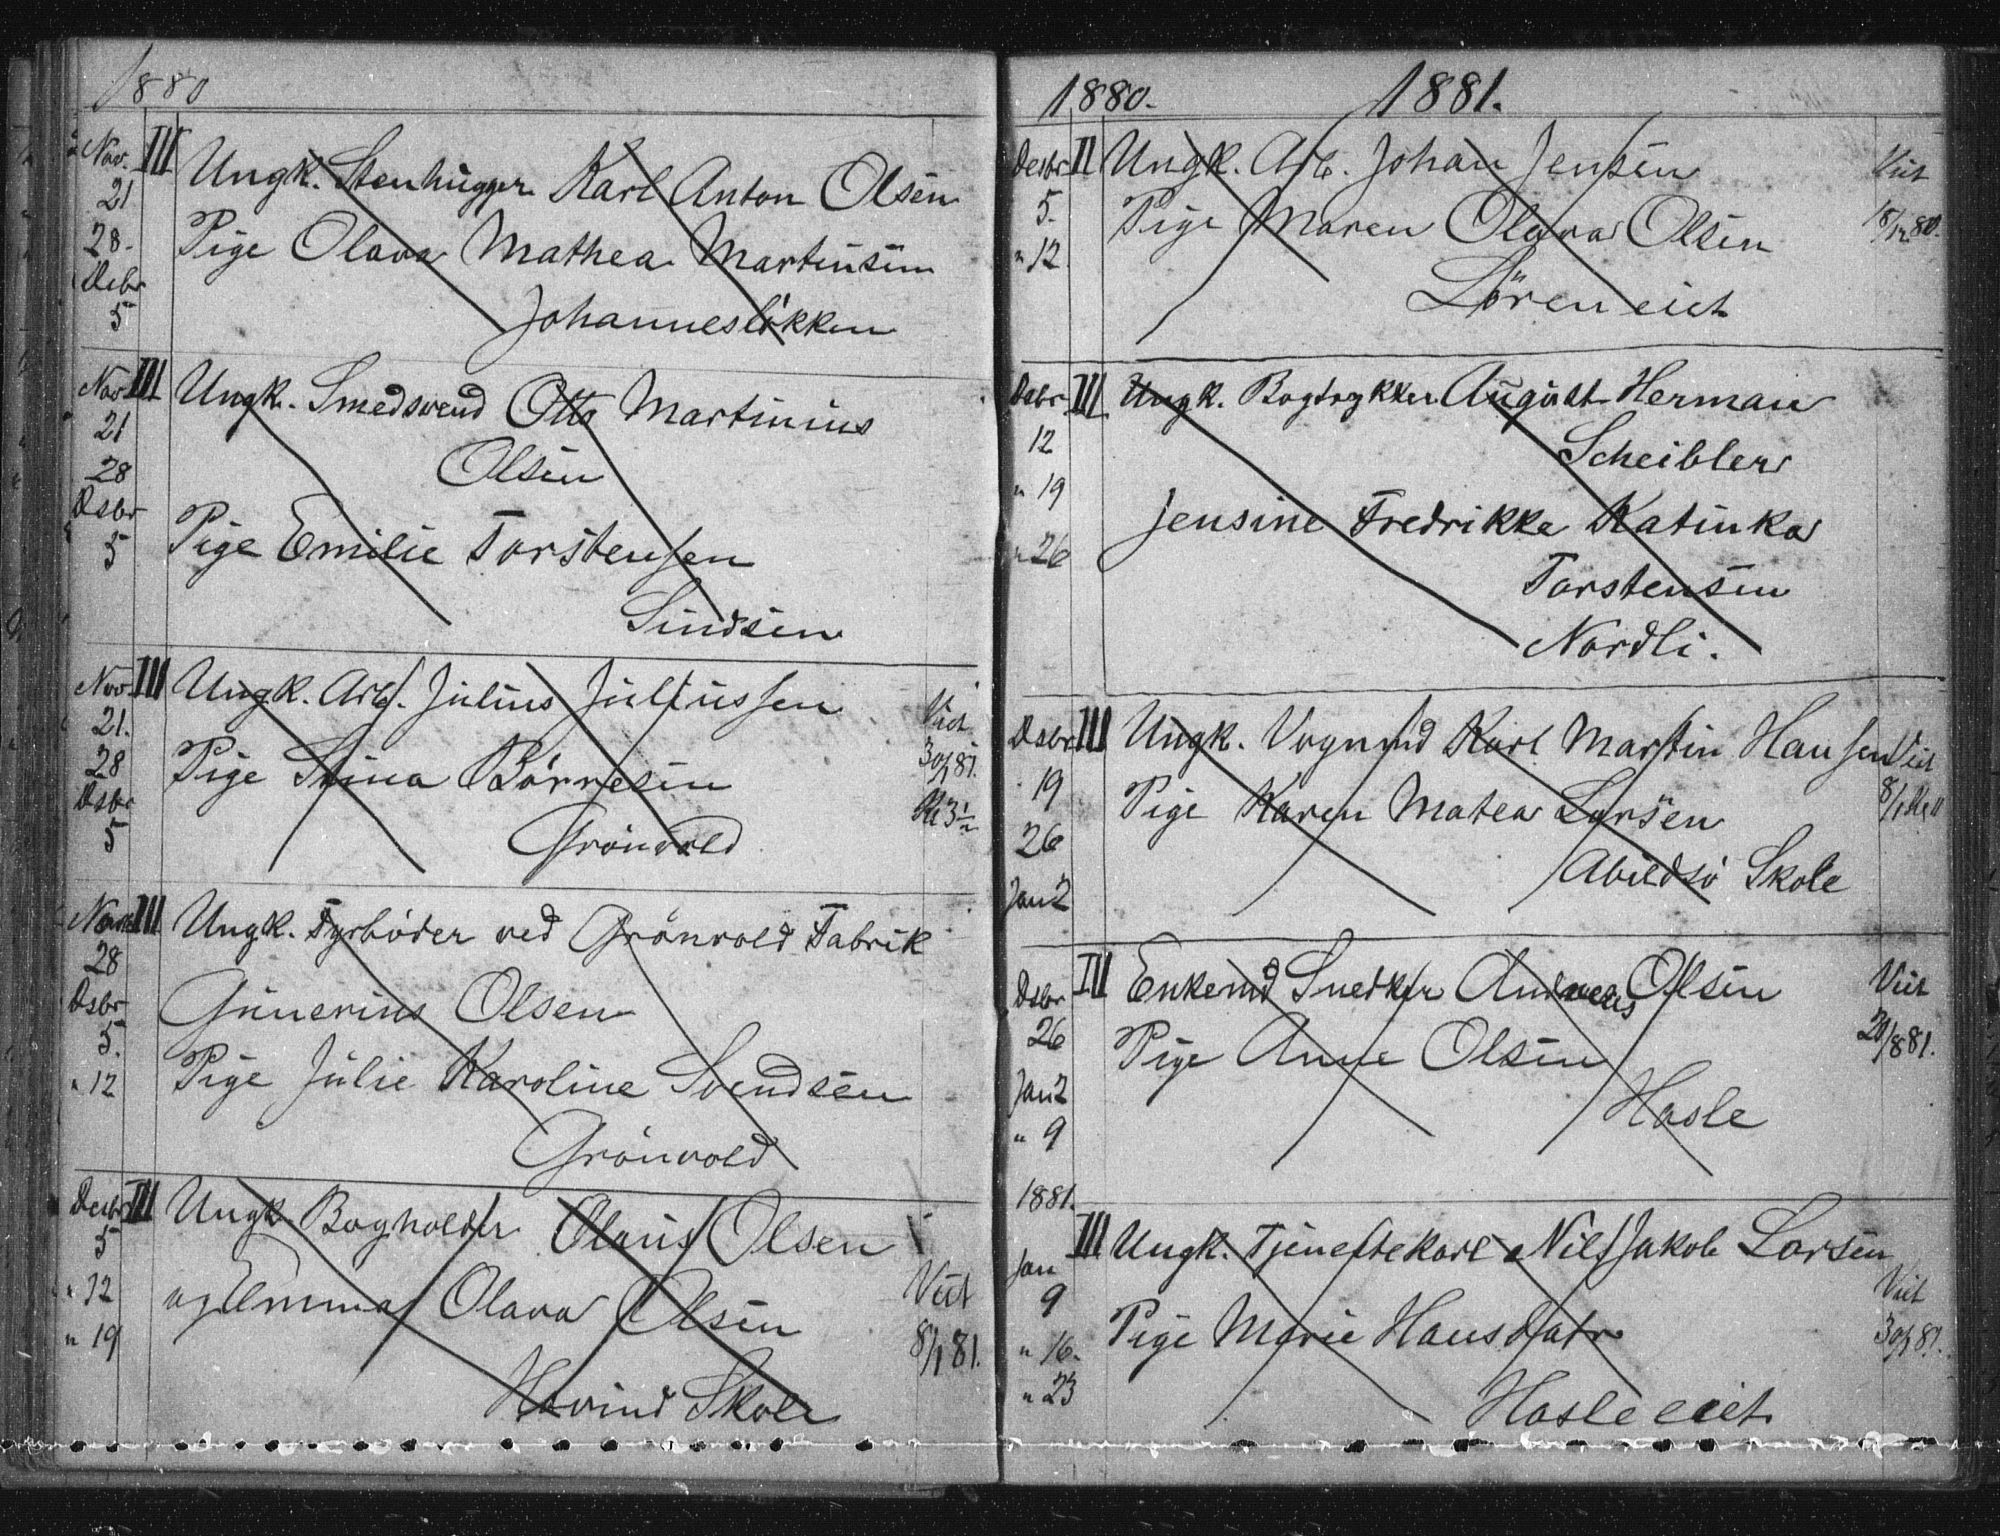 1880
Nov. III Ungk. Stenhugger Karl Anton Olsen
21
28. Pige Olava Mathea Martinsen
Decbr
5 Johannesløkken
Nov III Ungk. Smedsvend Otto Martinius
21 Olsen
28
Dsbr Pige Emilie Torstensen
5
Sindsen
Nov. III Ungk. Arb. Julius Juliussen Viet
21.
28 Pige Stina Börresen 30/1 81.
Dsbr
5 Grönvold
III Ungk. Fyrböder ved Grönvold Fabrik
28
Dsbr Günerius Olsen
5.
" 12 Pige Julie Karoline Svendsen
Grönvold
Decbr III Ungk. Bogholder Olaus Olsen
5
" 12 og Emma Olava Olsen Viet
" 19 8/1 81.
Hovind Skole
1880. 1881.
Desbr II Ungk. Arb. Johan Jensen Viet
5. Pige Maren Olava Olsen 18/12 80.
" 12
Lören eiet
Dsbr III Ungk. Bogtrykker August Herman
12 Scheibler
" 19 Jensine Fredrikke Katinka
" 26
Torstensen
Nordli.
Dsbr III Ungk. Vognmd Karl Martin Hansen Viet
19 Pige Karen Matea Larsen 8/1
26
Jan 2 Abildsö Skole
Dsbr III Enkemd Snedker Andreas Olsen Viet
26 Pige Anne Olsen 20/8 81.
Jan 2 Hasle
" 9
1881.
Jan III Ungk. Tjenestekarl Nils Jakob Larsen
9 Viet
" 16. Pige Marie Hansdatr 30/1 81.
" 23
Hasle eiet